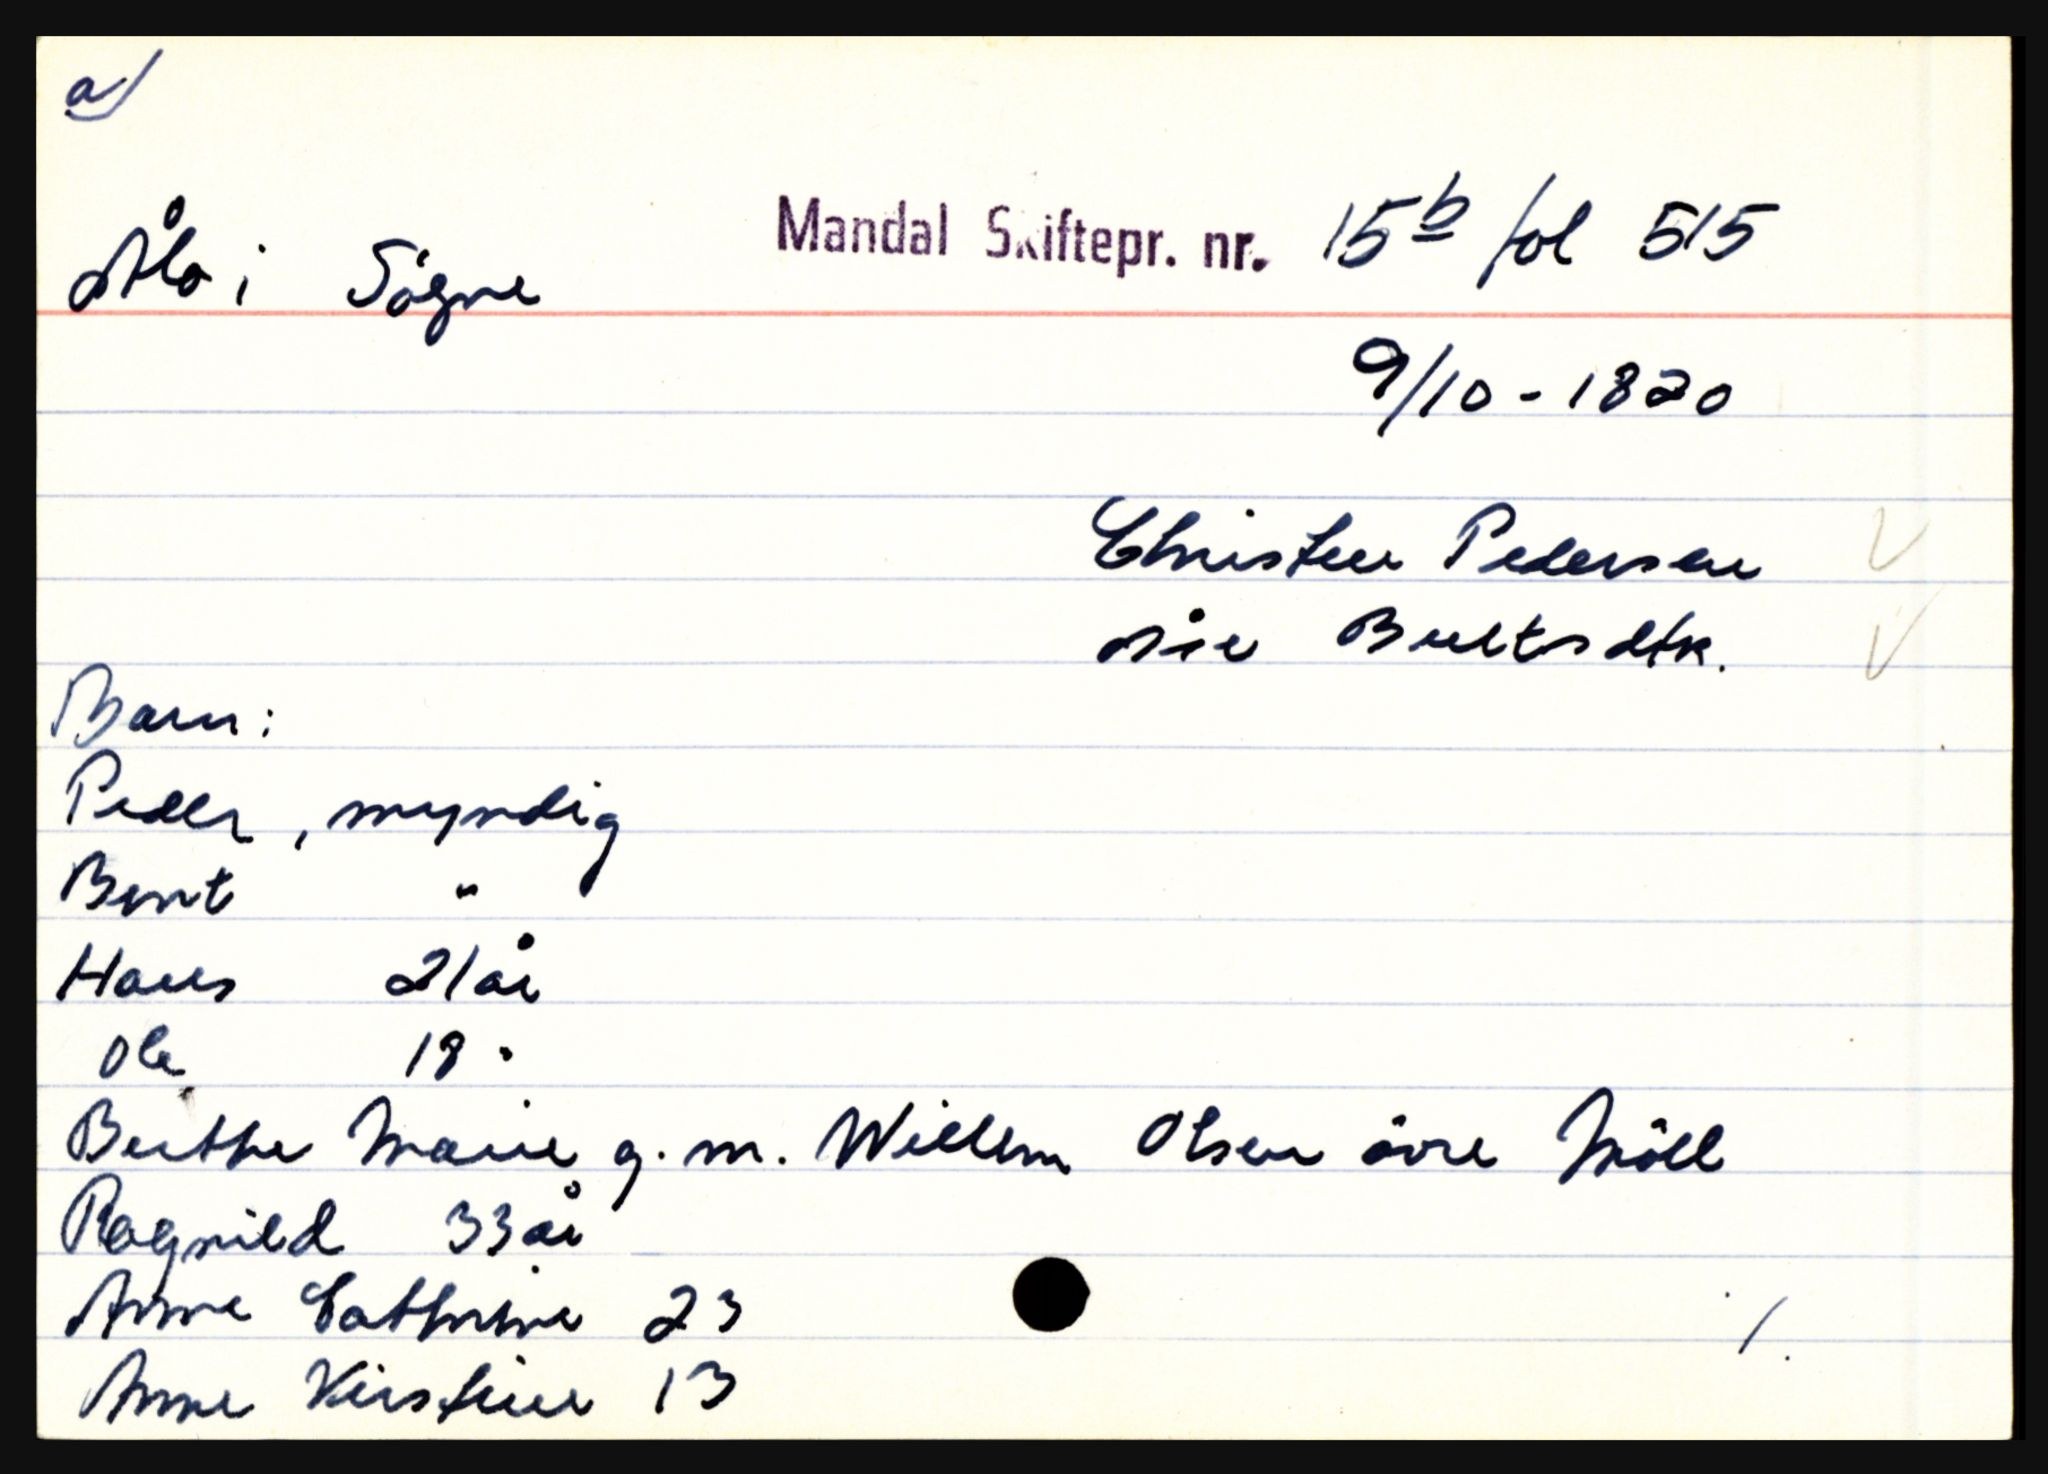 a)
Mandal Skiftepr. nr. 15b fol 515
Ålo i Sögne
9/10 - 1820
Christen Pedersen
Siri Bentsdtr.
Barn:
Peder, myndig
Bent "
Hans 21 år
Ole 18 "
Berthe Marie g.m. Willem Olsen övre Möll
Ragnild 33 år
Anne Cathrine 23
Anne Kirstine 13
./.